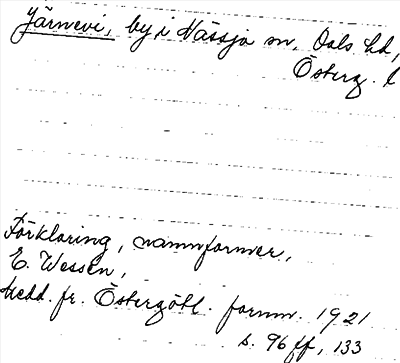 Järnevi, by i Nässja sn, Dals hd,
Österg. l
Förklaring, namnformer,
E. Wessén,
Medd. fr. Östergötl. fornm. 1921
s. 96 ff, 133